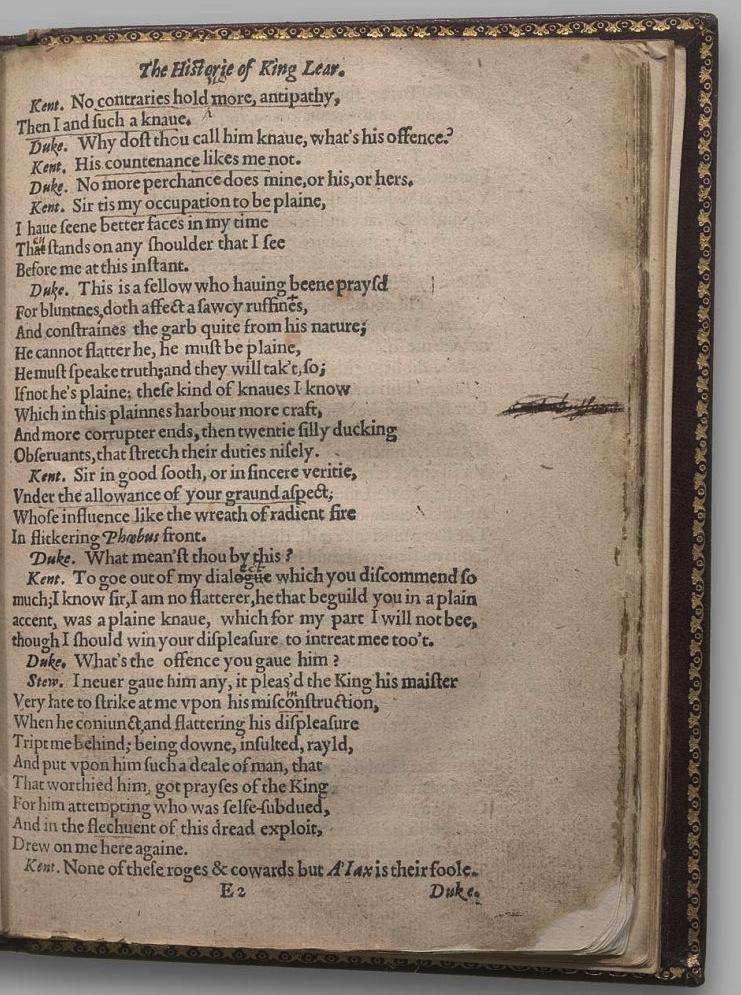 The Historie of King Lear.
Kent. No contraries hold more, antipathy,
Then I and such a knaue.
Duke. Why dost thou call him knaue, what's his offence?
Kent. His countenance likes me not.
Duke. No more perchance does mine, or his, or hers.
Kent. Sir tis my occupation to be plaine,
I haue seene better faces in my time
That stands on any shoulder that I see
Before me at this instant.
Duke. This is a fellow who hauing beene praysd
For bluntnes, doth affect a sawcy ruffines,
And constraines the garb quite from his nature;
He cannot flatter he, he must be plaine,
He must speake truth; and they will tak't, so;
If not he's plaine; these kind of knaues I know
Which in this plainnes harbour more craft,
And more corrupter ends, then twentie silly ducking
Obseruants, that stretch their duties nisely.
Kent. Sir in good sooth, or in sincere veritie,
Vnder the allowance of your graund aspect;
Whose influence like the wreath of radient fire
In flickering Phœbus front.
Duke. What mean'st thou by this?
Kent. To goe out of my dialogue which you discommend so
much; I know sir, I am no flatterer, he that beguild you in a plain
accent, was a plaine knaue, which for my part I will not bee,
though I should win your displeasure to intreat mee too't.
Duke. What's the offence you gaue him?
Stew. I neuer gaue him any, it pleas'd the King his maister
Very late to strike at me vpon his misconstruction,
When he coniunct, and flattering his displeasure
Tript me behind; being downe, insulted, rayld,
And put vpon him such a deale of man, that
That worthied him, got prayses of the King
For him attempting who was selfe-subdued,
And in the flechuent of this dread exploit,
Drew on me here againe.
Kent. None of these roges & cowards but A'Iax is their foole.
E2 Duke.